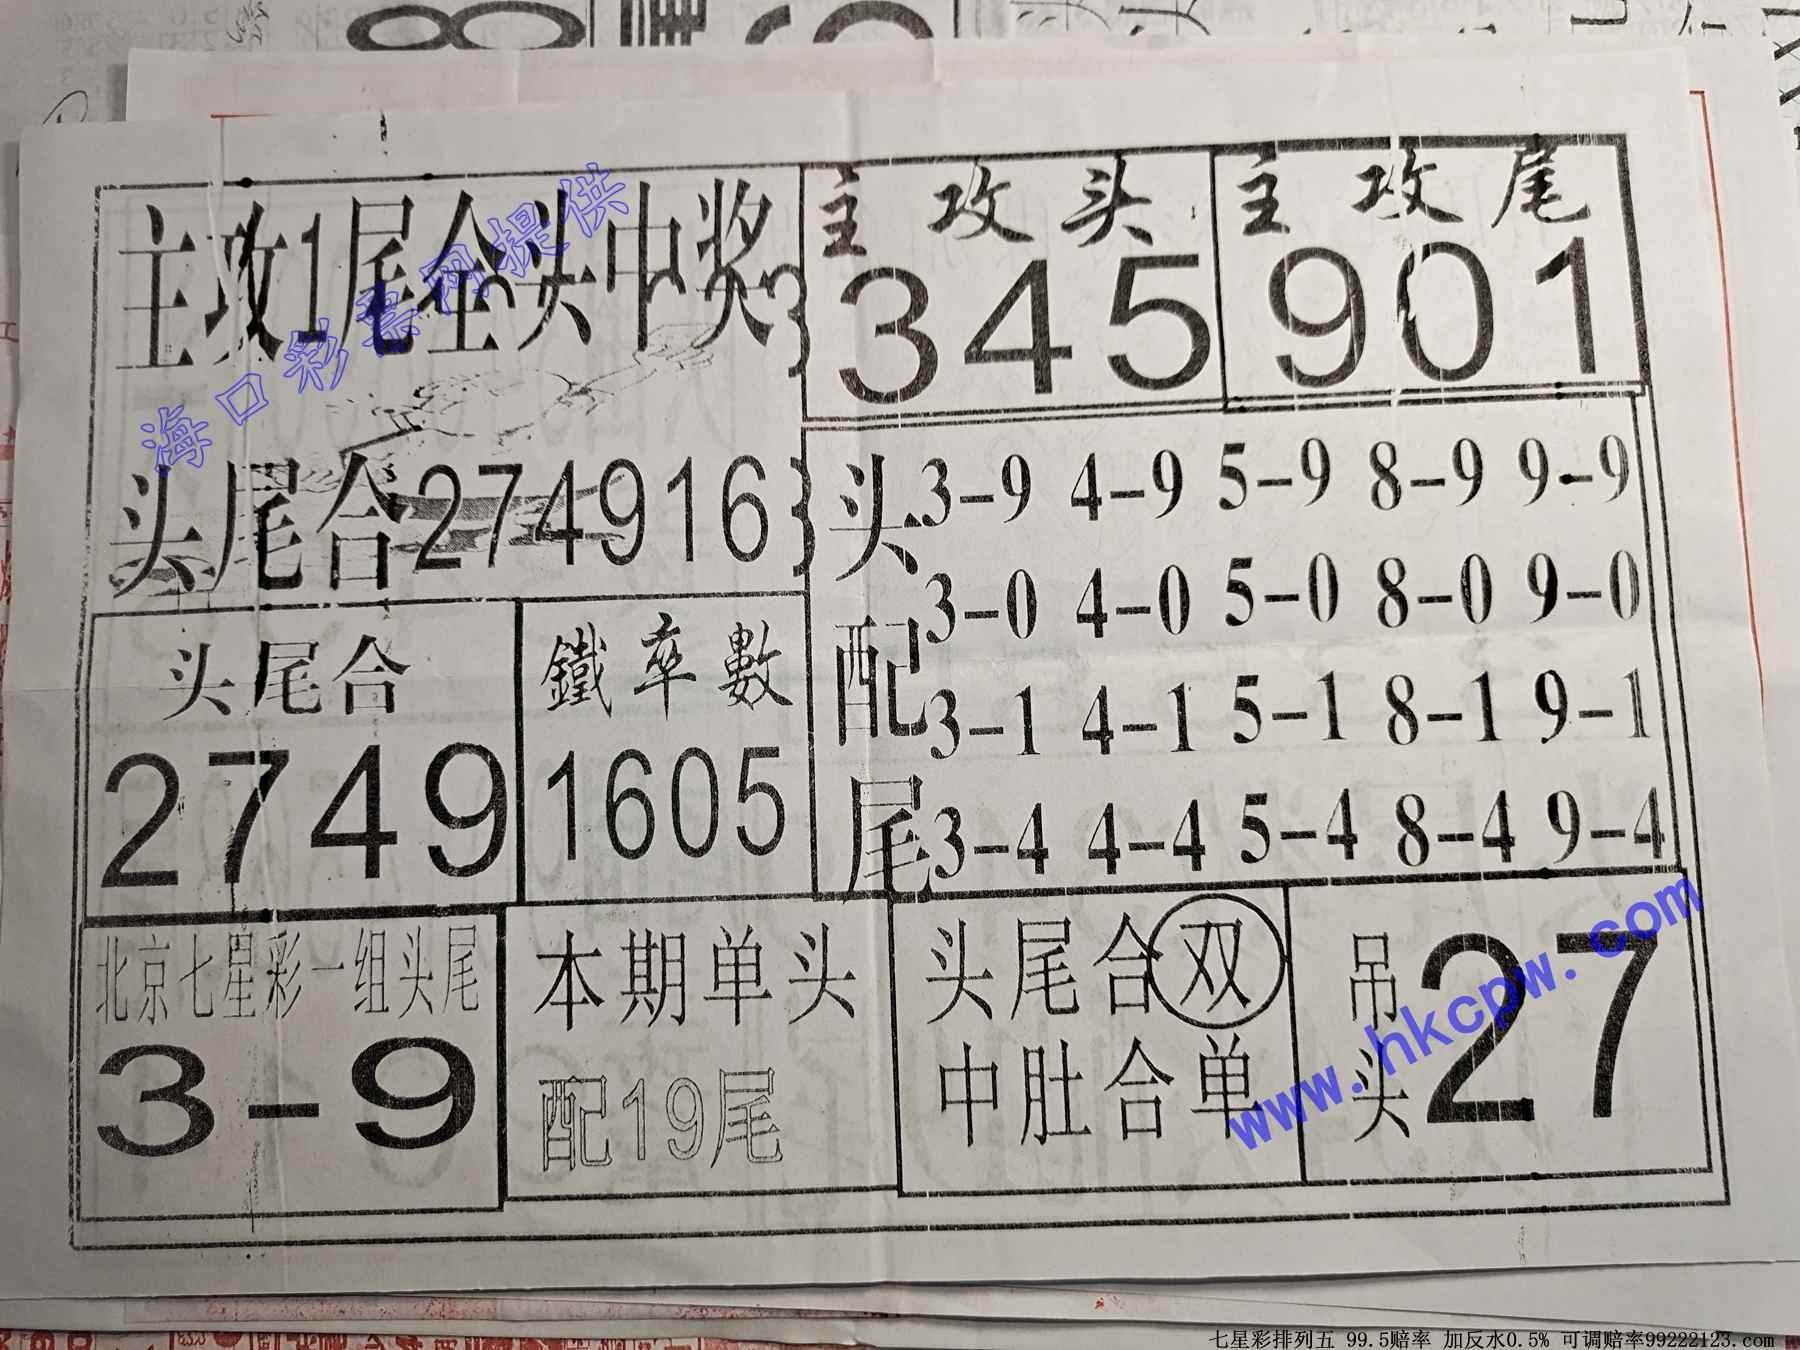 主攻1尾全头中奖
海口彩票网提供
头尾合274916
主攻头
345
主攻尾
901
头配尾
3-9 4-9 5-9 8-9 9-9
3-0 4-0 5-0 8-0 9-0
3-1 4-1 5-1 8-1 9-1
3-4 4-4 5-4 8-4 9-4
头尾合
2749
鐵率數
1605
北京七星彩一组头尾
3-9
本期单头
配19尾
头尾合双
中肚合单
吊头
27
www.hkcpw.com
七星彩排列五 99.5赔率 加反水0.5% 可调赔率99222123.com